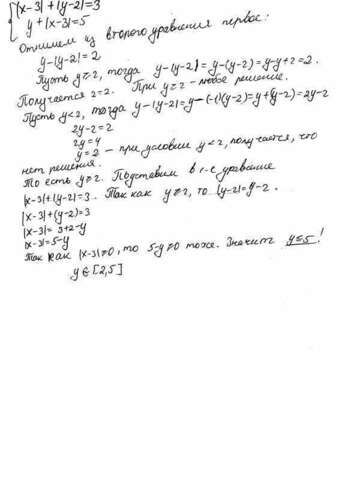 |x-3|+|y-2|=3
y+|x-3|=5
Отнимем из второго уравнения первое:
y-|y-2|=2
Пусть y≥2, тогда y-|y-2|=y-(y-2)=y-y+2=2.
Получается 2=2. При y≥2 - любое решение.
Пусть y<2, тогда y-|y-2|=y-(-1)(y-2)=y+(y-2)=2y-2
2y-2=2
2y=4
y=2 - при условии y<2, получается, что
нет решения.
То есть y≥2. Подставим в 1-е уравнение
|x-3|+|y-2|=3. Так как y≥2, то |y-2|=y-2.
|x-3|+(y-2)=3
|x-3|=3+2-y
|x-3|=5-y
Так как |x-3|≥0, то 5-y≥0 тоже. Значит y≤5!
y∈[2,5]